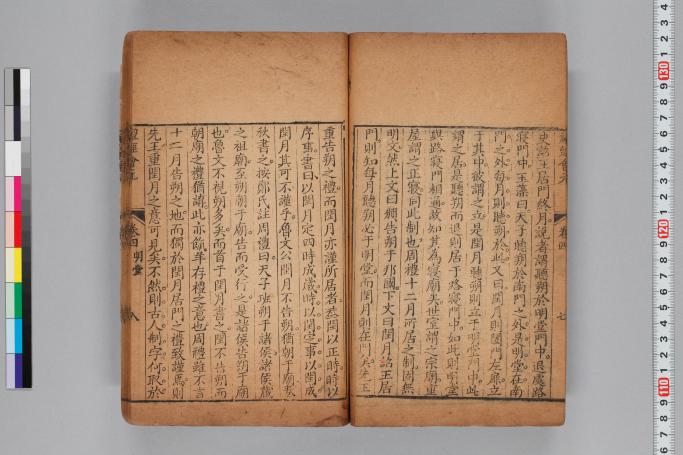 史詔王居門終月說者謂聽朔於明堂門中退處路
寢門中玉藻曰天子聽朔於南門之外是明堂在南
門之外每月則聽朔於此又曰閏月則闔門左扉立
于其中彼謂之立是閏月聽朔則立于明堂門中此
謂之居是聽朔而退則居于路寢門中如此則明堂
與路寢門相通故知其為寢廟矣世室謂之宗廟重
屋謂之正寢同此制也周禮十二月所居之制雖無
明文然上文曰頒告朔于邦國下文曰閏月詔王居
門則知每月聽朔必于明堂而閏月則在門夫先王
重告朔之禮而閏月亦謹所居者蓋閏以正時時以
序事書曰以閏月定四時成歲時以閏定事以閏成
閏月其可不謹乎魯文公閏月不告朔猶朝于廟春
秋書之按鄭氏註周禮曰天子班朔于諸侯諸侯藏
之祖廟至朔朝于廟告而受行之是諸侯告朔于廟
也魯文不視朔多矣而首于閏月書之閏不告朔而
朝廟之禮猶講此亦餼羊存禮之意也周禮雖不言
十二月告朔之地而獨於閏月居門之禮致謹焉則
先王重閏月之意可見矣不然則古人制字何取於
卷四 明堂
八
卷四
七